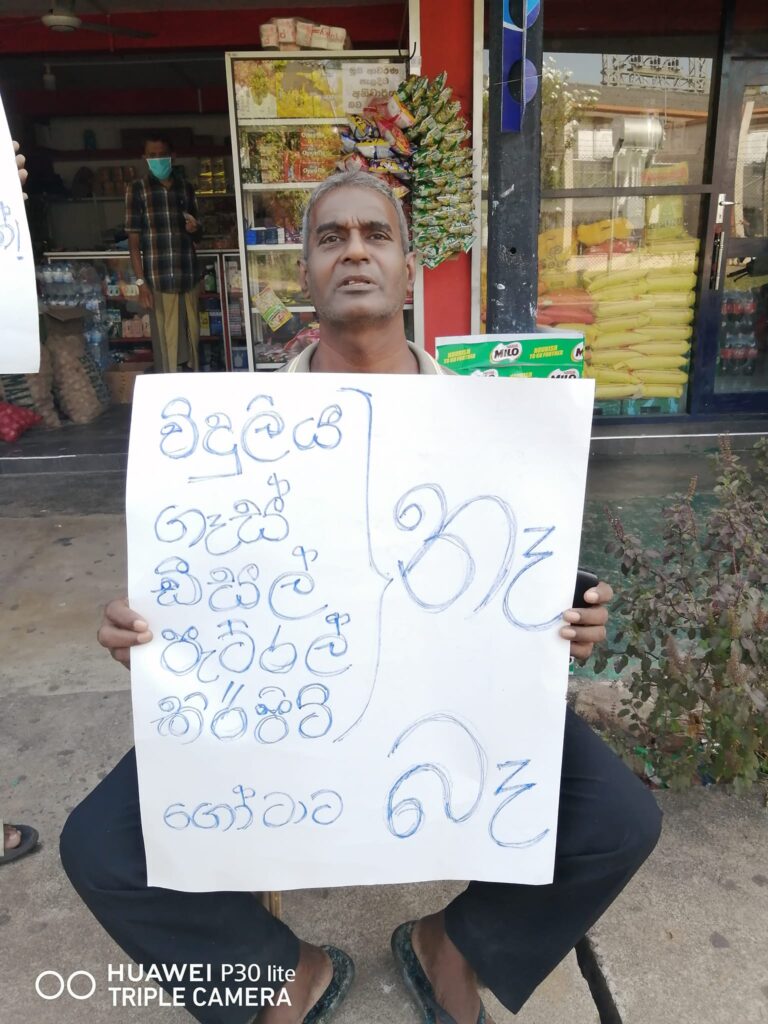 විදුලිය
ගෑස්
ඩීසල්
පැට්රල්
කිරිපිටි
නෑ
ගෝටාට
බෑ
MILO
MILO
HUAWEI P30 lite
TRIPLE CAMERA